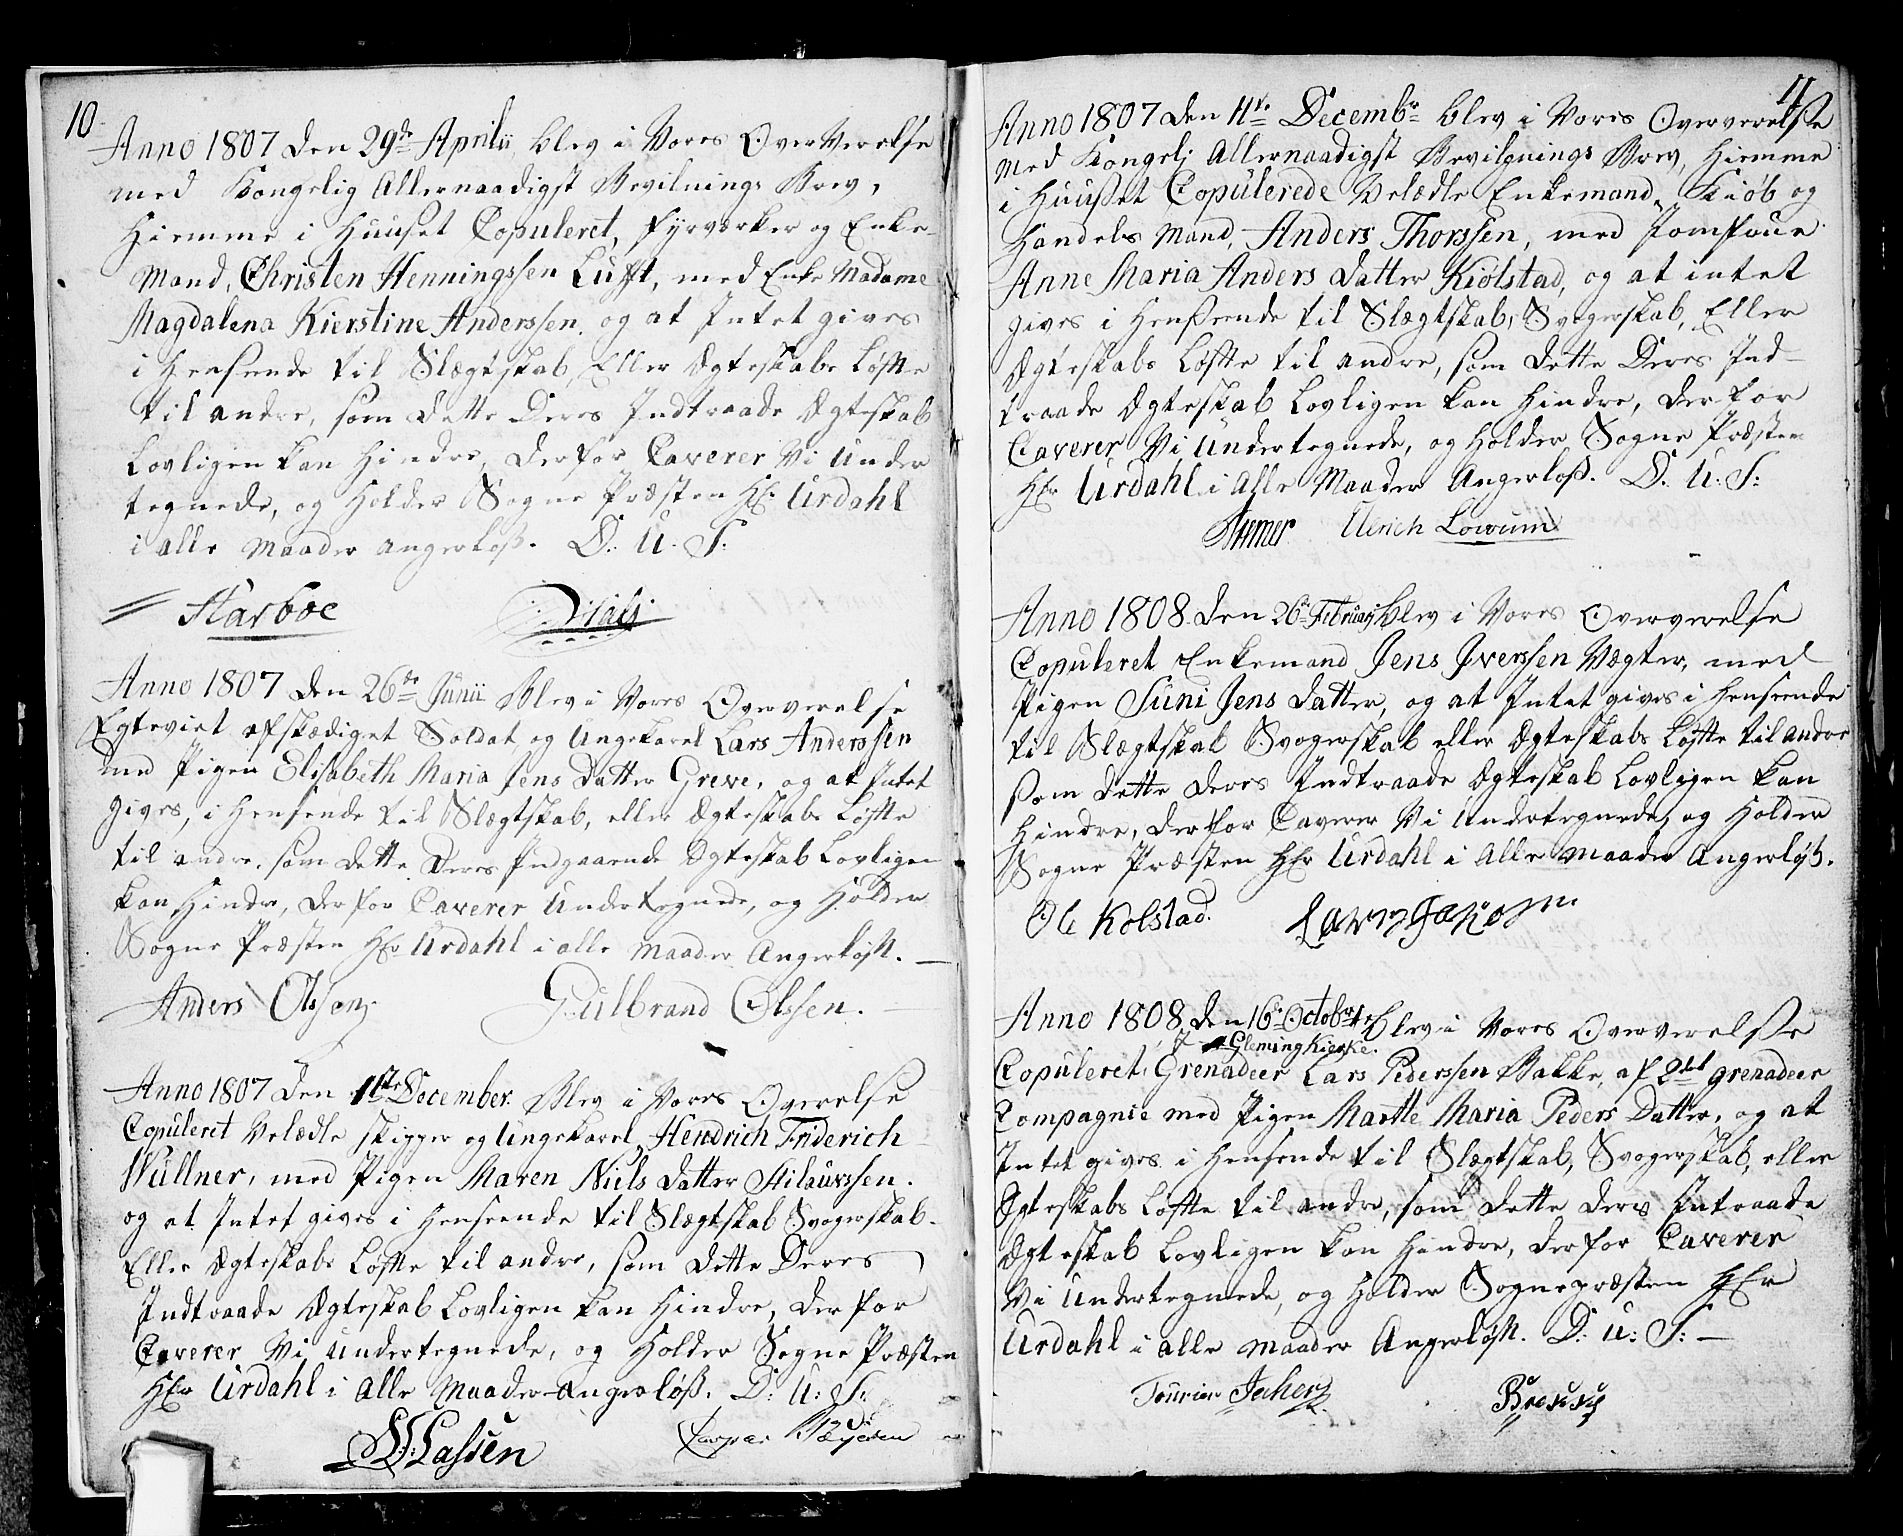 10
Anno 1807 den 29de Aprilii blev i Vores Oververelse
med Kongelig Allernaadigst Bevilnings Brev,
Hiemme i Huuset Copuleret, fyrværker og Enke-
Mand, Christen Henningssen Lufft, med Enke Madame
Magdalena Kierstine Anderssen, og at Intet gives
i Hensende til Slægtskab, Eller Ægteskabs Løfte
til andre, som dette Deres Indtraade Ægteskab
Lovligen kan Hindre, derfor Caverer Vi Under
tegnede, og Holder Sogne Præsten Hr Urdahl
i alle Maader angerløss. D. U. S:
Harboe
Anno 1807 den 26de Junii Blev i Vores Oververelse
Egteviet afskædiget Soldat og Ungekarel Lars Anderssen
med Pigen Elisabeth Maria Jens Datter Greve, og at Intet
gives, i Hensende til Slægtskab, eller Ægteskabs Løfte
til andre, som dette Deres Indgaaende Ægteskab Lovligen
kan Hindre, derfor Caverer Undertegnede, og Holder
Sogne Præsten Hr Urdahl i alle Maader Angerløst. —
Anders Olssen Gulbrand Olssen.
Anno 1807 den 11te December Blev i Vores Overelse
Copuleret Velædle skipper og Ungekarel Hendrich Friderich
Wüllner, med Pigen Maren Niels Datter Hilaurssen.
og at Intet gives i Henseende til Slægtskab Svogerskab.
Eller Ægteskabs Løfte til andre, som dette Deres
Indtraade Ægteskab Lovligen kan Hindre, derfor
Caverer Vi Undertegnede, og Holder Sogne Præsten
Hr Urdahl i Alle Maader angerløss. D: U: S:
Lassen
11
Anno 1807 den 11te Decembr blev i Vores Oververelsse
med Kongelj Allernaadigst Bevilgnings Brev, Hiemme
i Huusset Copulerede Velædle Enkemand, Kiøb og
Handels Mand, Anders Thorssen, med Jomfrue
Anne Maria Anders Datter Kiølstad, og at intet
gives i Hensseende til Slægtskab, Svogerskab, Eller
Ægteskabs Løfte til andre, som dette Deres Ind-
traade Ægteskab Lovligen kan Hindre, derfor
Caverer Vi Undertegnede, og Holder Sogne Præsten
Hr Urdahl i Alle Maader Angerløss. D. U: S:
Ulrich
Anno 1808 den 26de Februarj blev i Vores Oververelse
Copuleret Enkemand Jens Iverssen Vægter, med
Pigen Siini Jens Datter, og at Intet gives i Henseende
til Slægtskab Svogerskab eller Ægteskabs Løfte til andre
som dette Deres Indtraade Ægteskab Lovligen kan
Hindre, derfor Caverer Vi Undertegnede, og Holder
Sogne Præsten Hr Urdahl i Alle Maader Angerløss.
Ole Kolstad.
Anno 1808 den 16de Octobr blev i Vores Oververelsse
I Gleming Kierke.
Copuleret Grenadeer Lars Pederssen Bakke, af 2det grenadeer
Compagnie med Pigen Marthe Maria Peders Datter, og at
Intet gives i Hensende til Slægtskab, Svogerskab, eller
Ægteskabs Løfte til andre, som dette deres Intraade
Ægteskab Lovligen kan Hindre, derfor Caverer
Vi Undertegnede, og Holder Sognepræsten Hr
Urdahl i alle Maader Angerløst. D: U: S: —